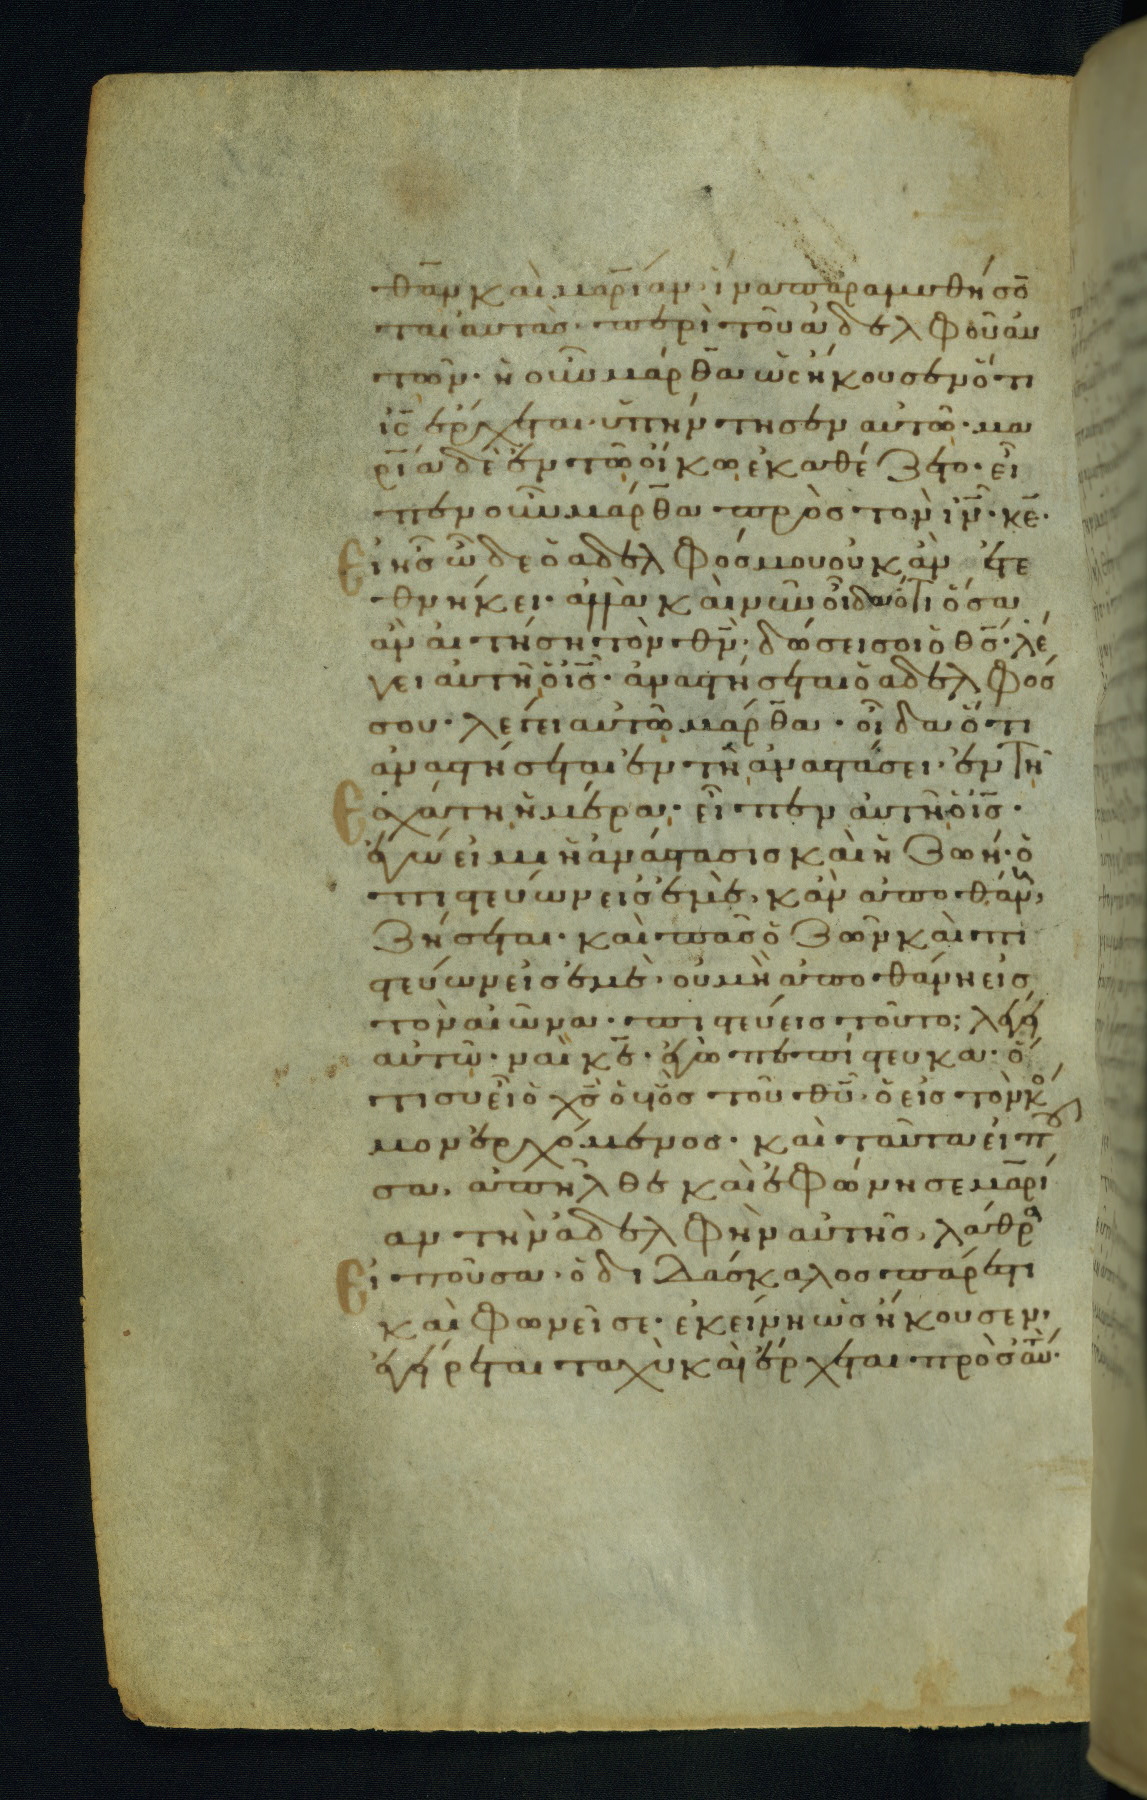 θᾶν καὶ μαρίαν· ἵνα παραμυθήσο̄
ται αὐτὰσ· περὶ τοῦ ἀδελφοῦ αὐ
τῶν· ἡ οὖν μάρθα ὡς ἤκουσεν ὅτι
ι̅ς̅ ἔρχεται· ὑπήντησεν αὐτῶ· μα
ρία δὲ ἐν τῶ οἴκω ἐκαθέζετο· εἶ
πεν οὖν μάρθα πρὸσ τὸν ι̅ν̅· κ̅ε̅·
Εἰ ἦσ ὧδε ὁ ἀδελφόσ μου οὐκ ἂν ἐτε
θνήκει· ἀλλὰ καὶ νῦν οἶδα ὅτι ὅσα
ἂν αἰτήση τὸν θ̅ν̅· δώσει σοι ὁ θ̅σ̅· λέ
γει αὐτῆ ὁ ι̅σ̅· ἀναστήσεται ὁ ἀδελφόσ
σου· λέγει αὐτῶ μάρθα· οἶδα ὅτι
ἀναστήσεται ἐν τῆ ἀναστάσει· ἐν τῆ
Εσχάτη ἡμέρα· εἶπεν αὐτῆ ὁ ι̅σ̅·
ἐγώ εἰμι ἡ ἀνάστασισ καὶ ἡ ζωή· ὁ
πιστεύων εἰσ ἐμὲ, κἂν ἀποθάνη,
ζήσεται· καὶ πᾶσ ὁ ζῶν καὶ πι
στεύων εἰσ ἐμὲ· οὐ μὴ ἀποθάνη εἰσ
τὸν αἰῶνα· πιστεύεισ τοῦτο; λέγει
αὐτῶ· ναὶ κ̅ε̅· ἐγὼ πεπίστευκα· ὅ
τι σὺ εἶ ὁ χ̅σ̅ ὁ υἱὸσ τοῦ θ̅υ̅· ὁ εἰσ τὸν κό
μον ἐρχόμενοσ· καὶ ταῦτα εἰποῦ
σα, ἀπῆλθε καὶ ἐφώνησε μαρί
αν τὴν ἀδελφὴν αὐτῆσ, λάθρα
Εἰποῦσα· ὁ διδάσκαλοσ πάρεστι
καὶ φωνεῖ σε· ἐκείνη ὡσ ἤκουσεν·
ἐγείρεται ταχὺ καὶ ἔρχεται πρὸσ αὐτόν·